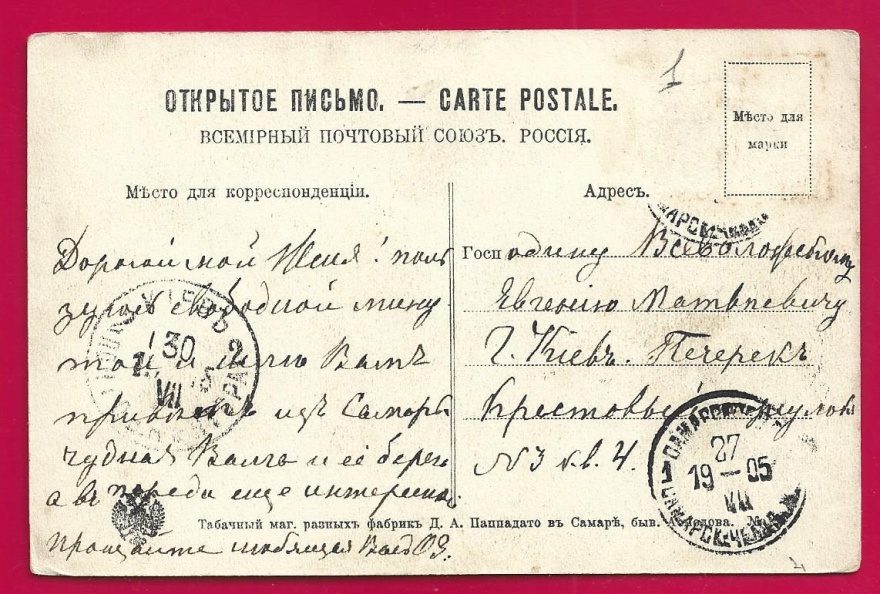 1
ОТКРЫТОЕ ПИСЬМО. — CARTE POSTALE.
ВСЕМІРНЫЙ ПОЧТОВЫЙ СОЮЗЪ. РОССІЯ.
Мѣсто для
марки
Мѣсто для корреспонденціи.
Дорогой мой Женя! поль
зуюсь свободной мину
той и шлю Вамъ
привѣтъ изъ Самары
чудная Волга и ея берега
а впереди еще интереснѣе.
прощайте любящая
Адресъ.
Господину Всеволожскому
Евгенію Матвѣевичу
Г. Кіевъ. Печерскъ
Крестовый переулокъ
№ 3 кв. 4.
КІЕВЪ
30
VII
27
19—05
VII
Табачный маг. разныхъ фабрикъ Д. А. Паппадато въ Самарѣ, быв.